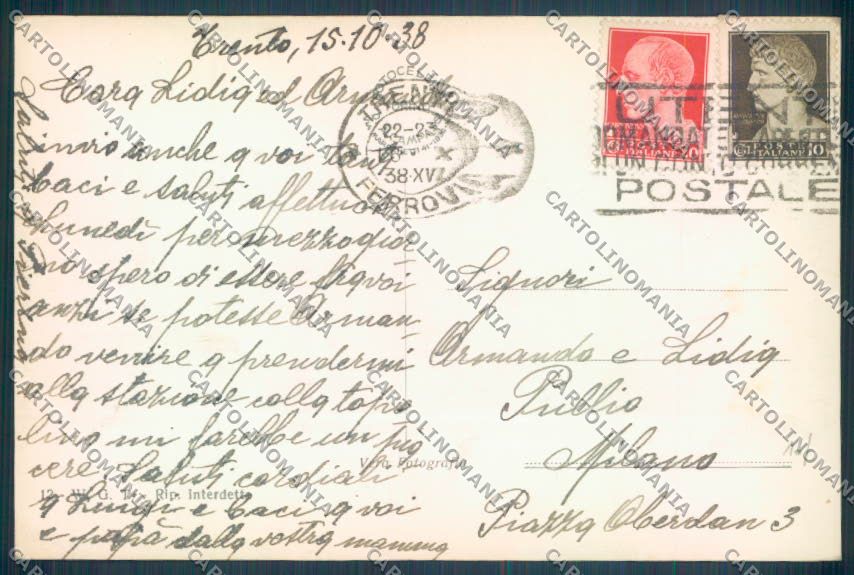 Trento, 15.10.38
Cara Lidia ed Armando
invio anche a voi tanti
baci e saluti affettuosi
Lunedì per mezzogior
no spero di essere da voi
anzi se potesse Arman-
do venire a prendermi
alla stazione colla topo
lino mi farebbe un pia
cere. Saluti cordiali
a Luigi e baci a voi
e papà dalla vostra mamma
Signori
Armando e Lidia
Publio
Milano
Piazza Oberdan 3
TRENTO
22-23
38-XVI
FERROVIA
POSTALE
POSTE ITALIANE 10
Vera Fotografia
Rip. Interdetta
CARTOLINOMANIA